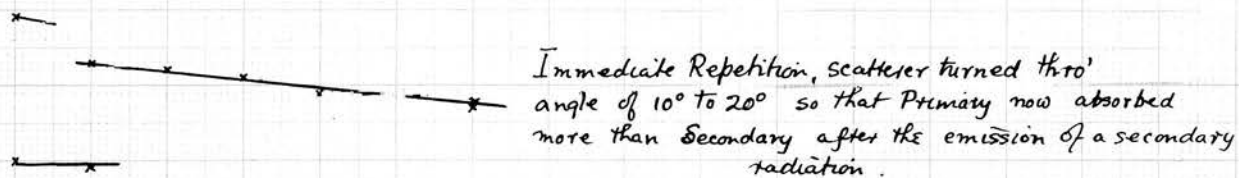 Immediate Repetition, scatterer turned thro'
angle of 10° to 20° so that Primary now absorbed
more than Secondary after the emission of a secondary
radiation.